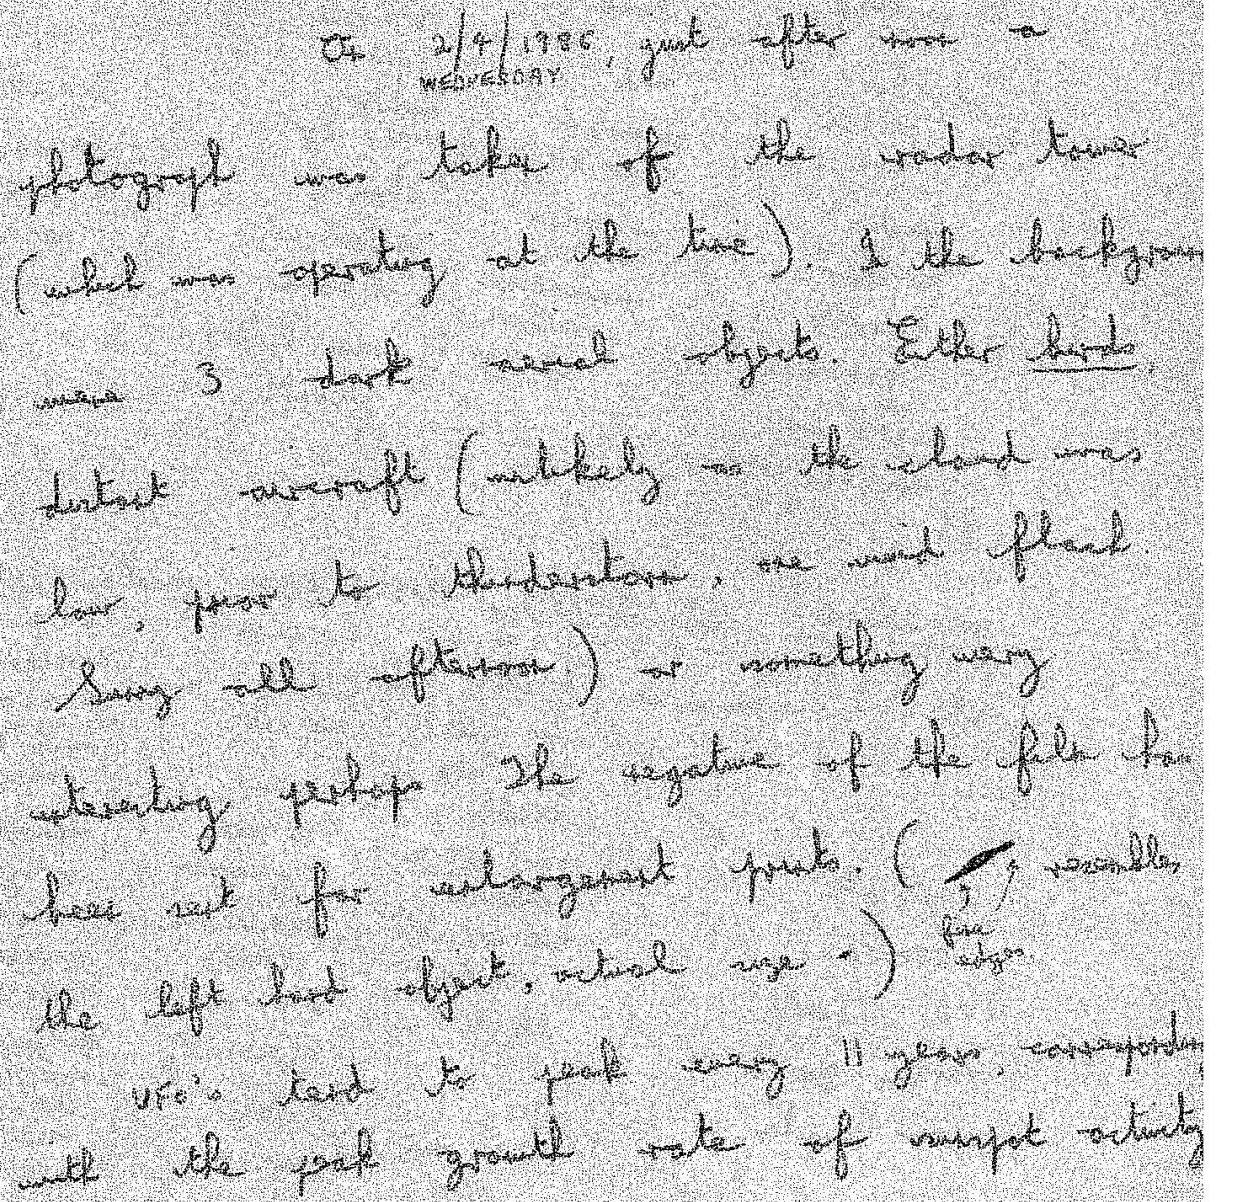 On 2/4/1986, just after noon a
WEDNESDAY
photograph was taken of the radar tower
(which was operating at the time). In the backgroun
were 3 dark aerial objects. Either birds,
distant aircraft (unlikely as the cloud was
low, prior to thunderstorm, one vivid flash.
Sunny all afternoon.) or something very
interesting perhaps The negative of the film has
been sent for enlargement prints. ( resembles
fine
edges.
the left hand object, actual size )
UFO's tend to peak every 11 years, corresponding
with the peak growth rate of sunspot activity